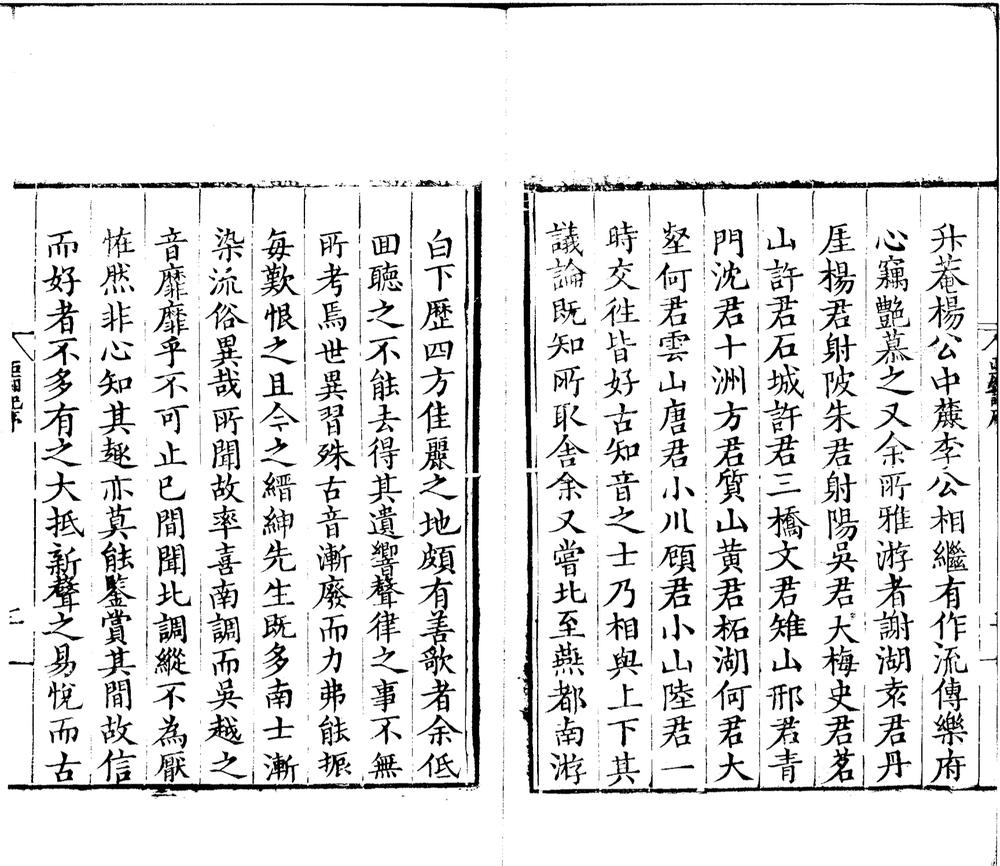 升菴楊公中麓李公相繼有作流傳樂府
心竊艷慕之又余所雅游者謝湖袁君丹
厓楊君射陂朱君射陽吳君大梅史君茗
山許君石城許君三橋文君雉山邢君青
門沈君十洲方君質山黄君柘湖何君大
壑何君雲山唐君小川顧君小山陸君一
時交徃皆好古知音之士乃相與上下其
議論既知所取舎余又嘗北至燕都南游
白下歷四方佳麗之地頗有善歌者余低
囬聽之不能去得其遺響聲律之事不無
所考焉世異習殊古音漸廢而力弗能振
每歎恨之且今之縉紳先生既多南士漸
染流俗異哉所聞故率喜南調而吳越之
音靡靡乎不可止已間聞北調縱不為厭
恠然非心知其趣亦莫能鑒賞其間故信
而好者不多有之大抵新聲之易悅而古